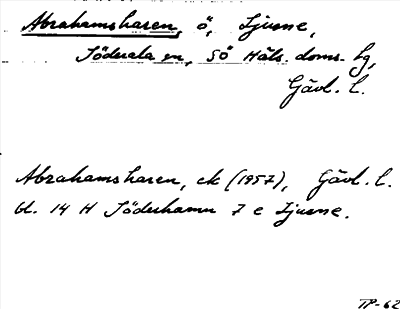 Abrahamsharen, ö, Ljusne,
Söderala sn, SÖ Häls. doms. hg,
Gävl. l.
Abrahamsharen, ek (1957), Gävl. l.
bl. 14 H Söderhamn 7 e Ljusne.
TP-62